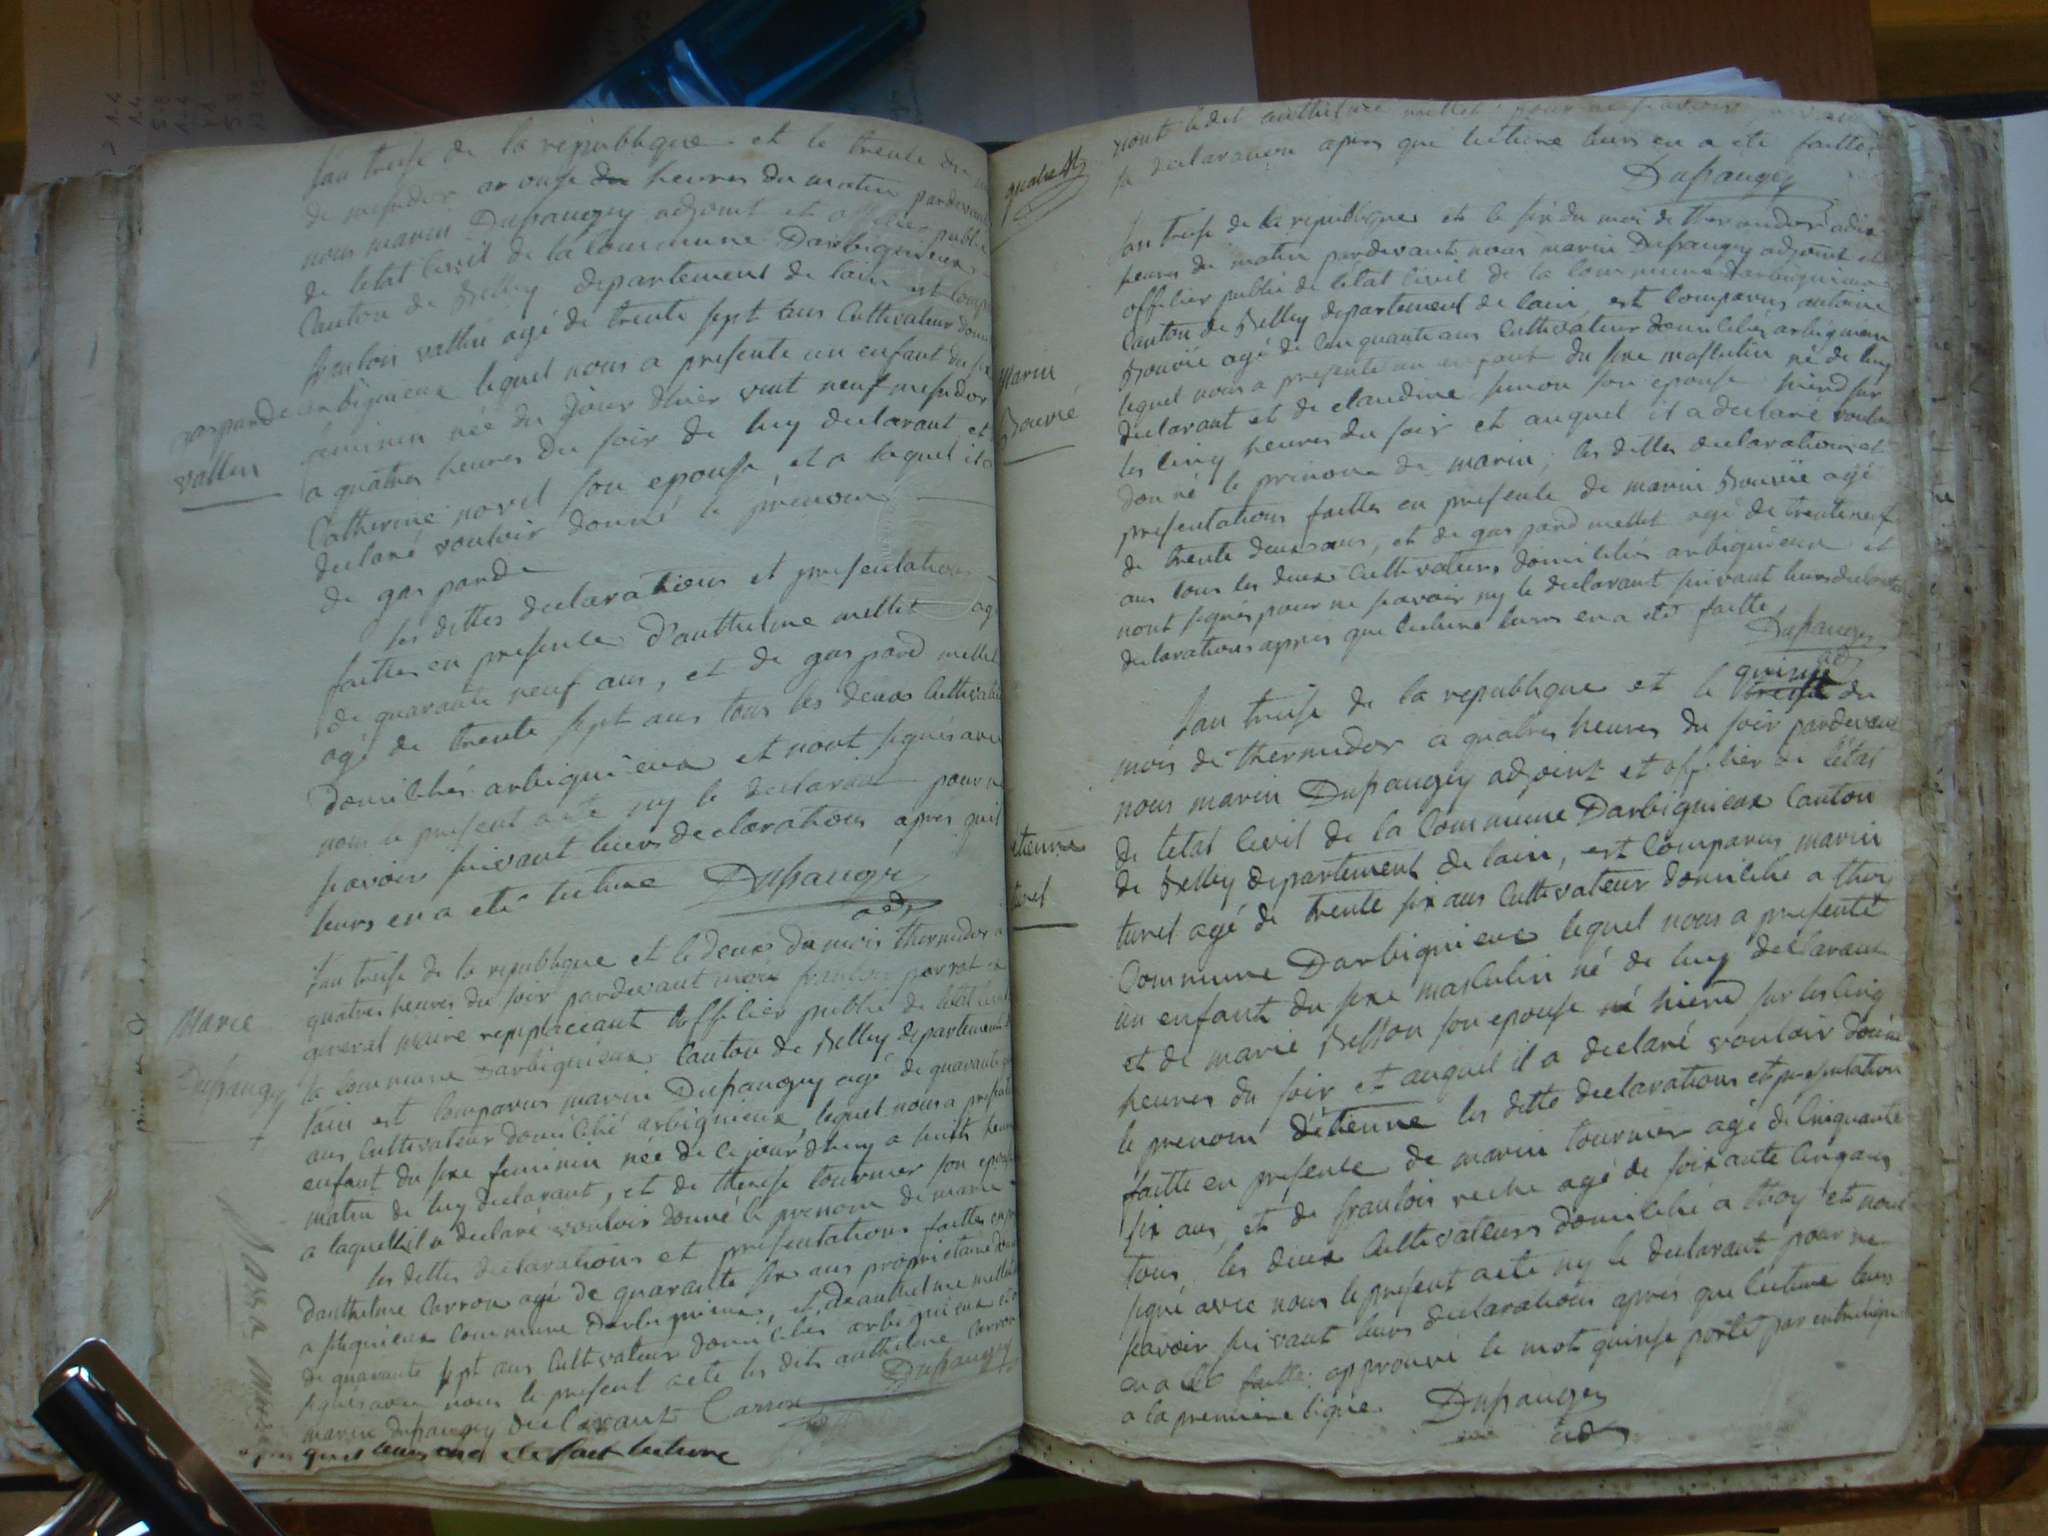 lan treise de la republique et le trente du
de messidor a onse heures du matin pardevant
nous marin Dupaugey adjoint et officier public
de letat civil de la Commune Darbignieux
Canton de Belley departement de lain est compa
francois vallin agé de trente sept ans Cultivateur domi
arbignieux lequel nous a presente un enfant du sex
gasparde
vallin
feminin née du jour dhier vint neuf messidor
a quatres heures du soir de luy declarant et
Catherine novel son epouse, et a laquel il a
declaré vouloir donné le prenom
de gasparde
les dittes declarations et presentations
faittes en presence d'anthelme mellet agé
de quarante neuf ans, et de gaspard mellet
agé de trente sept ans tous les deux Cultivate
domiciliés arbignieux et nont signés avec
nous le present acte ny le declarant pour ne
scavoir suivant leurs declarations apres quil
leurs en a eté lecture Dupaugey
adj
lan treise de la republique et le deux du mois thermidor a
quatres heures du soir pardevant nous francois parrat
general maire remplaceant lofficier public de letat civil
Marie
Dupaugey
la commune darbignieux Canton de Belley departement
lain est comparus marin Dupaugey agé de quarante
ans Cultivateur domicilié arbignieux, lequel nous a presente
enfant du sexe feminin née de ce jourdhuy a huits heures
matin de luy declarant, et de therese tournier son epouse
a laquelle il a declaré vouloir donné le prenom de marie
les dittes declarations et presentations faittes en pre
danthelme Carron agé de quarante six ans proprietaire dom
a pugnieux commune darbignieux, et de anthelme mellet
de quarante sept ans Cultivateur domiciliés arbignieux et o
signés avec nous le present acte les dits anthelme Carron
marin dupaugey declarant Carron Dupaugey
apres quil leurs en a eté fait lecture
nont ledit anthelme mellet pour ne scavoir
sa declaration apres que lecture leurs en a eté faitte
Dupaugey
lan treise de la republique et le six du mois de thermidor a dix
heures du matin pardevant nous marin Dupaugey adjoint et
officier public de letat civil de la commune darbignieux
Canton de Belley departement de lain, est comparus antoine
Marin
Bouvié
Bouvié agé de cinquante ans Cultivateur domiciliés arbignieux
lequel nous a presente un enfant du sexe masculin né de luy
declarant et de claudine simon son epouse hierd sur
les cinq heures du soir et auquel il a declaré vouloir
donné le prenom de marin, les dittes declarations et
presentations faittes en presence de marin Bouvié agé
de trente deux ans, et de gaspard mellet agé de trente neuf
ans tous les deux Cultivateurs domiciliés arbignieux et
nont signés pour ne scavoir ny le declarant suivant leurs declarat
declarations apres que lecture leurs en a eté faitte
Dupaugey
adj
quinse
lan treise de la republique et le treise du
mois de thermidor a quatres heures du soir pardevant
nous marin Dupaugey adjoint et officier de letat
de letat civil de la Commune Darbignieux Canton
etienne
turel
de Belley departement de lain, est Comparus marin
turel agé de trente six ans Cultivateur domicilié a thoy
Commune Darbignieux lequel nous a presenté
un enfant du sexe masculin né de luy declarant
et de marie Besson son epouse né hierd sur les cinq
heures du soir et auquel il a declaré vouloir donné
le prenom d'étienne les ditte declarations et presentation
faitte en presence de marin tournier agé de Cinquante
six ans, et de francois reche agé de soixante cinq ans
tous les deux Cultivateurs domicilié a thoy et nont
signé avec nous le present acte ny le declarant pour ne
scavoir suivant leurs declarations apres que lecture leurs
en a eté faitte. approuvé le mot quinse porté par entreligne
a la premiere ligne. Dupaugey
adj